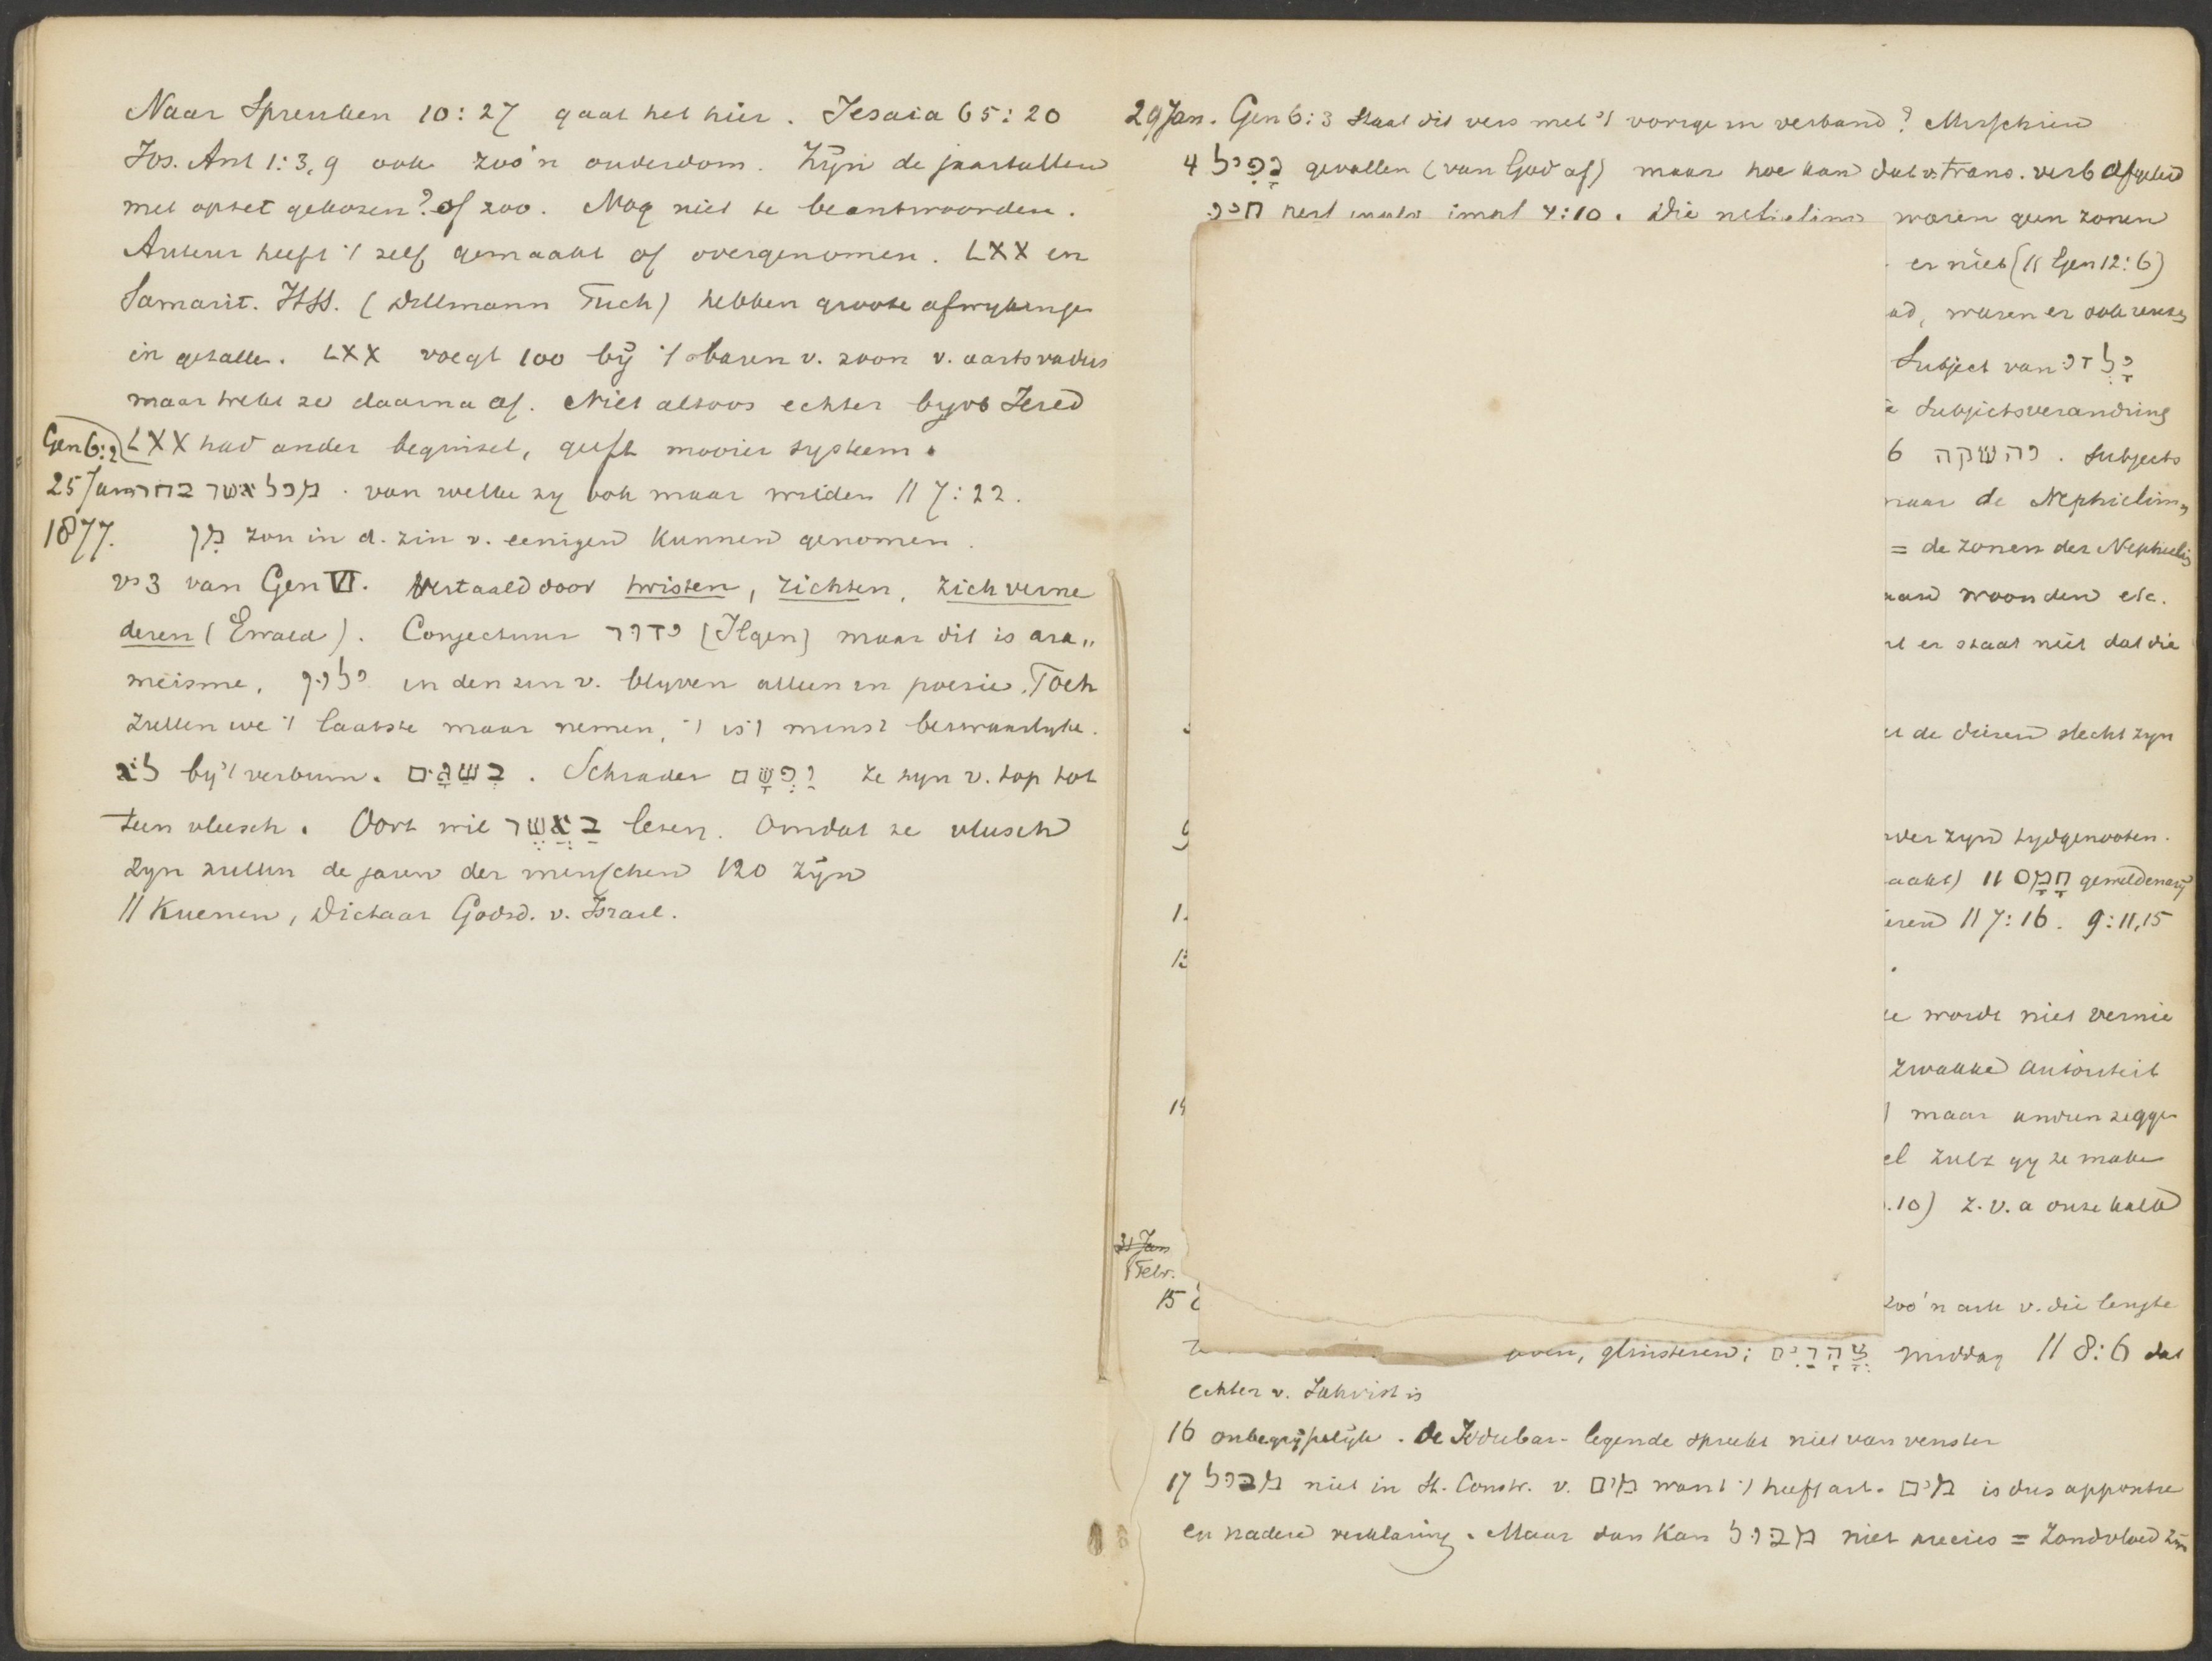 Naar Spreuken 10:27 gaat het hier. Jesaia 65:20
Jos. Ant 1:3,9 ook zoo'n ouderdom. Zijn de jaartallen
met opzet gekozen? of zoo. Mag niet te beantwoorden.
Auteur heeft 't zelf gemaakt of overgenomen. LXX en
Samarit. HSS. (Dillmann Tuch) hebben groote afwykinge
in getalle. LXX voegt 100 bij 't baren v. zoon v. aartsvaders
maar trekt ze daarna af. Niet altoos echter byvb Jered
Gen 6:2 LXX had ander beginsel, geeft mooier systeem.
25 Jan מכל אשר בחרו . van welke zy ook maar wilden // 7:22.
1877. מן zou in d. zin v. eenigen kunnen genomen.
vs 3 van Gen VI. Vertaald door twisten, zichten, zich verne
deren (Ewald). Conjectuur ידור [Ilgen] maar dit is ara„
meisme, ילין in den zin v. blyven alleen in poesie. Toch
zullen we 't laatste maar nemen, 't is 't minst bezwaarlyke.
לא by 't verbum. בְשַגָם . Schrader ze zyn v. top tot
teen vleesch. Oort wil בַאֲשֶר lezen. Omdat ze vleesch
zyn zullen de jaren der menschen 120 zijn
// Kuenen, Dictaat Godsd. v. Israel.
29 Jan. Gen 6:3 Staat dit vers met 't vorige in verband? Misschien
4 נָפִיל gevallen (van God af) maar hoe kan dat v. trans. verb afgeleid
4:10. Die waren geen zonen
er niet (// Gen 12:6)
ad, waren er ook reuzen
Subject van
Subjectsverandring
6 . Subjects
naar de Nephielim,
= de zonen der Nephielim
woonden etc.
er staat niet dat die
de dieren slecht zyn
zyn tydgenooten.
9
aakt) // חָמָס gewelddenarij
1
eren // 7:16. 9:11,15
13
wordt niet vernie
zwakke autoriteit
14
maar andren zegge
el zult gy ze make
.10) z.v.a onze kalk
31 Jan
1 Febr.
15
zoo'n ark v. die lengte
oven, glinsteren; צָהֳרַיִם middag // 8:6 dat
echter v. Jahvist is
16 onbegrijpelijk. De Izdubar-legende spreekt niet van venster
17 מבול niet in St. Constr. v. מים want 't heeft art. מים is dus appositie
en nadere verklaring. Maar dan kan מבול niet precies = Zondvloed zijn